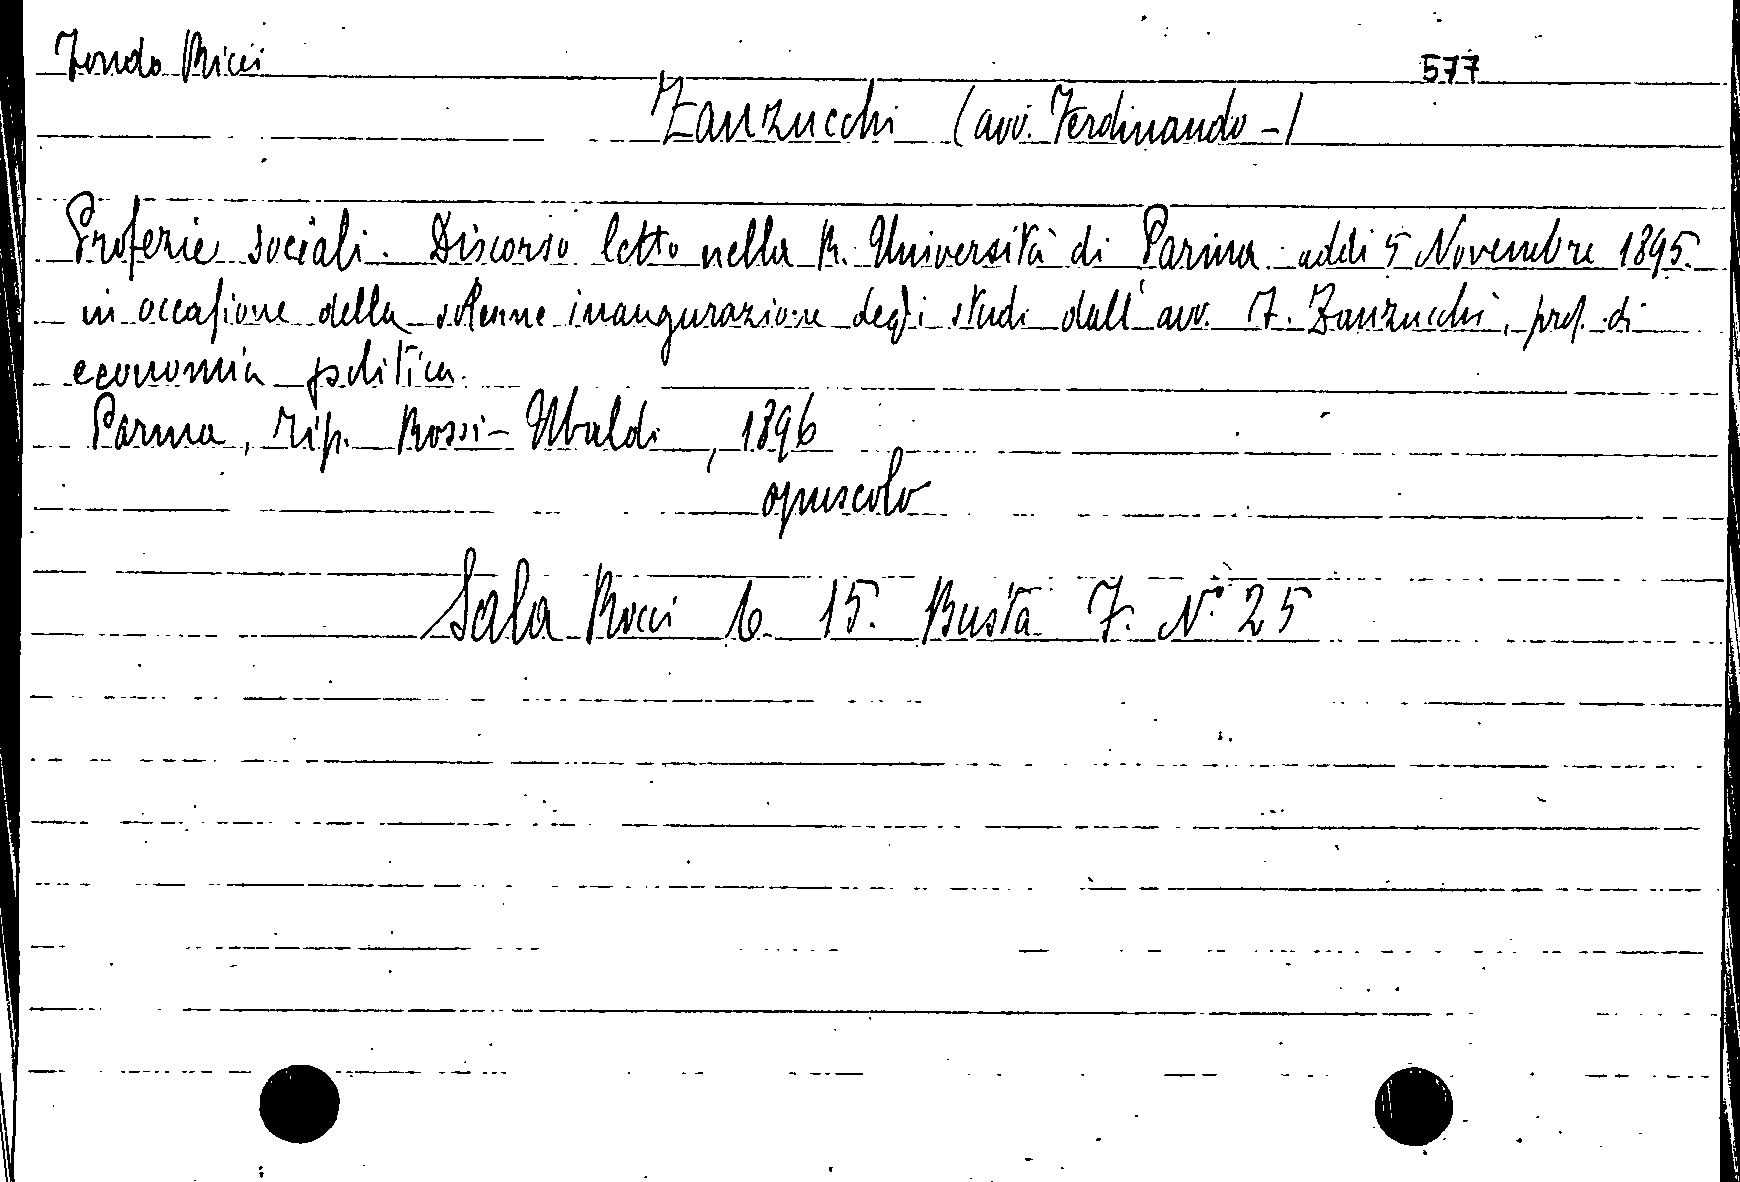 Fondo Ricci 577
Zanzucchi (avv. Ferdinando -)
Profezie sociali. Discorso letto nella R. Università di Parma addì 5 Novembre 1895.
in occasione della solenne inaugurazione degli studi dall' avv. F. Zanzucchi, prof. di
economia politica.
Parma, Tip. Rossi-Ubaldi, 1896
opuscolo
Sala Ricci 6. 15. Busta 7. N.° 25